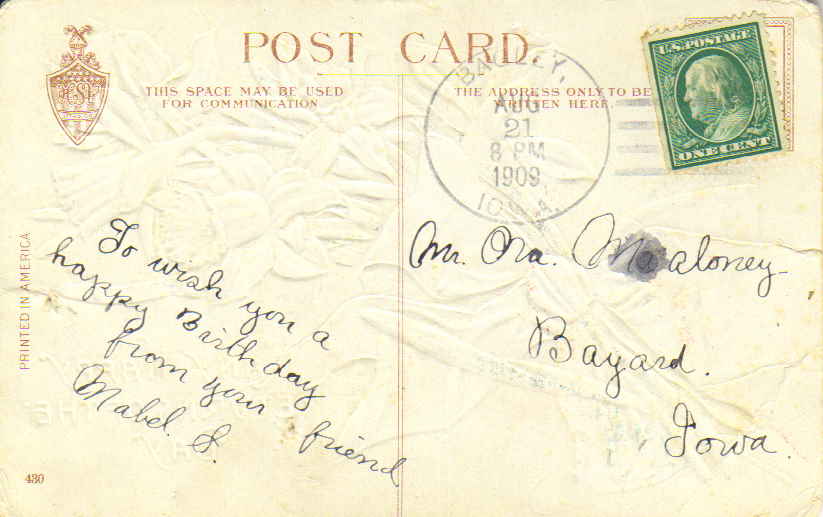 POST CARD
THIS SPACE MAY BE USED
FOR COMMUNICATION
THE ADDRESS ONLY TO BE
WRITTEN HERE.
BAGLEY,
AUG
21
8 PM
1909
IOWA.
U.S. POSTAGE
ONE CENT
PRINTED IN AMERICA
To wish you a
happy Birthday
from your friend
Mabel. S.
Mr. Ora. Maloney
Bayard.
Iowa.
430